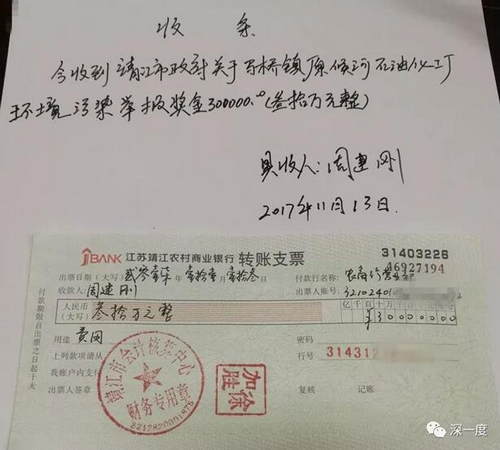 收条
今收到靖江市政府关于马桥镇原候河石油化工厂
环境污染举报奖金300000.00(叁拾万元整)
具收人:周建刚
2017年11月13日.
BANK 江苏靖江农村商业银行 转账支票 31403226
06927194
出票日期(大写) 贰零壹柒年壹拾壹月壹拾叁日 付款行名称:
收款人:周建刚 出票人账号:
人民币(大写) 叁拾万元整 亿千百十万千百十元角分
¥30000000
用途 费用 密码
上列款项请从 行号 31431
我账户内支付
出票人签章 复核 记账
付款期限自出票之日起十天
靖江市会计核算中心
财务专用章
徐胜加
深一度